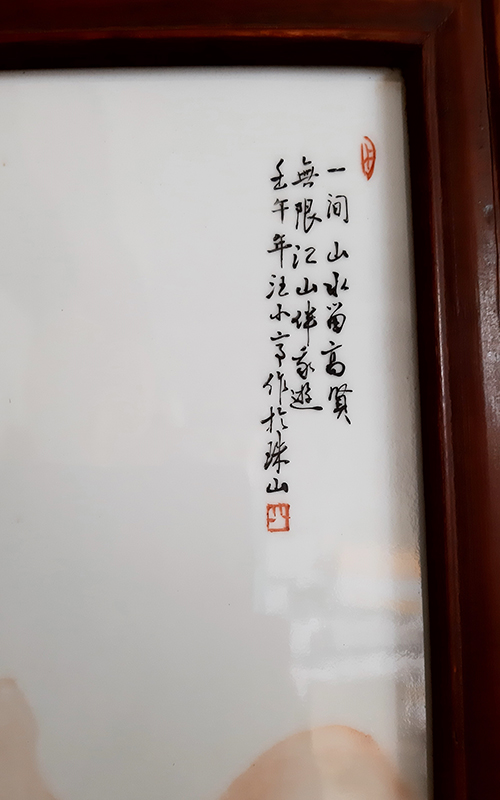 一间山水留高賢
無限江山伴我遊
壬午年汪小亭作於珠山